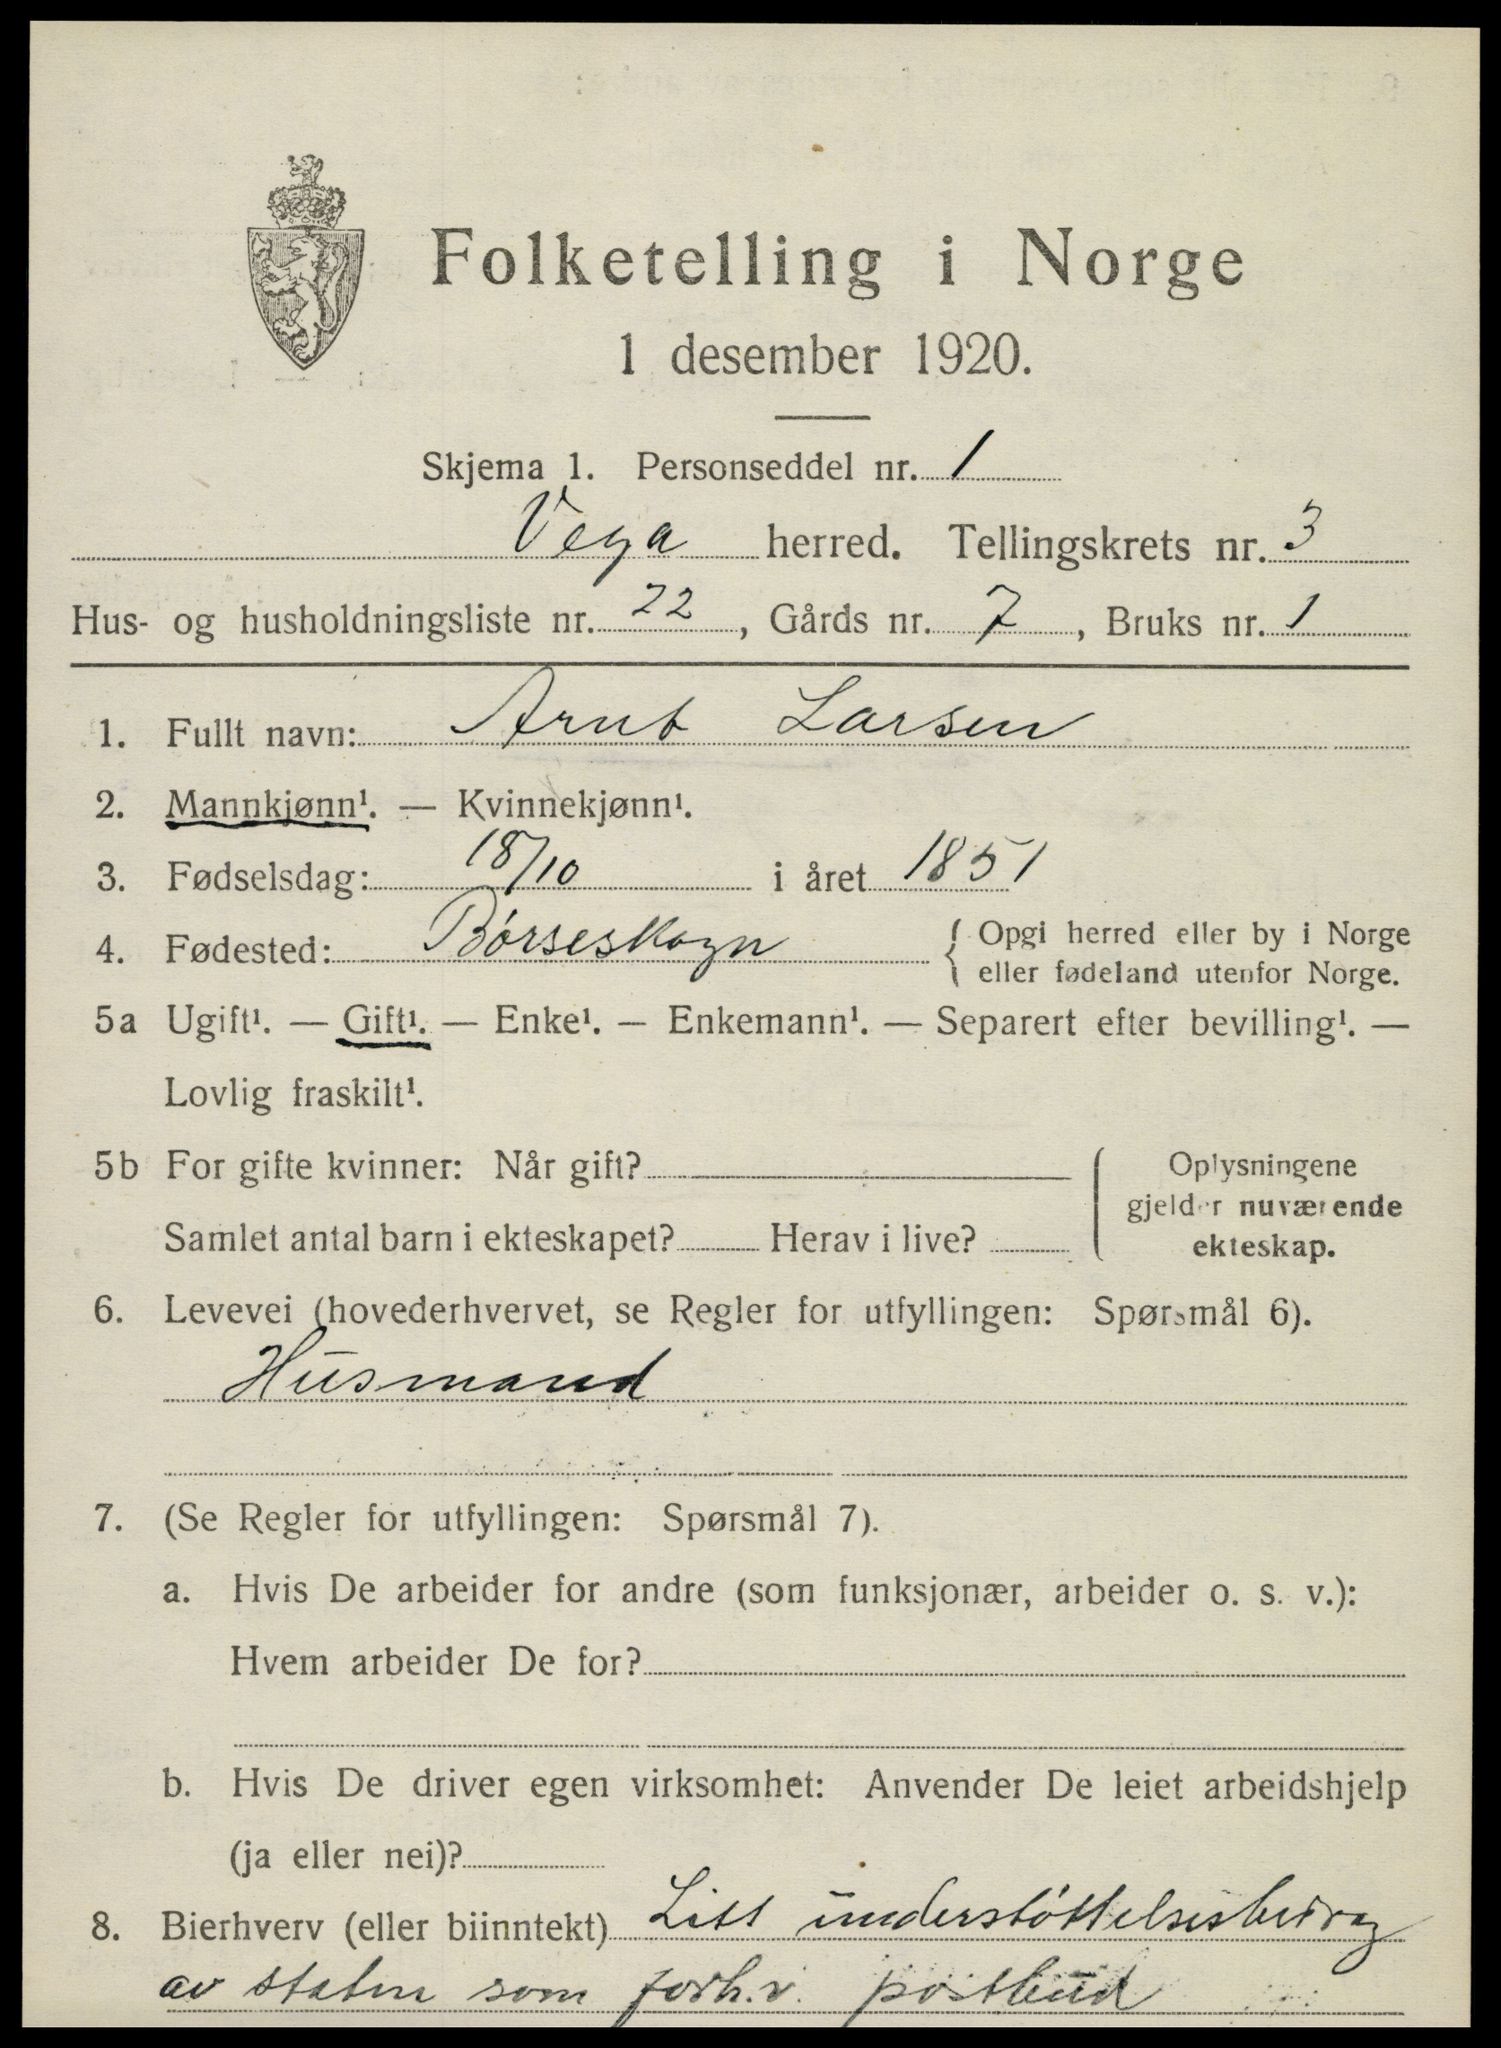 Folketelling i Norge
1 desember 1920.
Skjema 1. Personseddel nr. 1
Vega herred. Tellingskrets nr. 3
Hus- og husholdningsliste nr. 22, Gårds nr. 7, Bruks nr. 1
1. Fullt navn: Arnt Larsen
2. Mannkjønn¹. — Kvinnekjønn¹.
3. Fødselsdag: 18/10 i året 1851
4. Fødested: Börseskogn { Opgi herred eller by i Norge
eller fødeland utenfor Norge.
5a Ugift¹. — Gift¹. — Enke¹. — Enkemann¹. — Separert efter bevilling¹. —
Lovlig fraskilt¹.
5b For gifte kvinner: Når gift?
Samlet antal barn i ekteskapet? Herav i live?
Oplysningene
gjelder nuværende
ekteskap.
6. Levevei (hovederhvervet, se Regler for utfyllingen: Spørsmål 6).
Husmand
7. (Se Regler for utfyllingen: Spørsmål 7).
a. Hvis De arbeider for andre (som funksjonær, arbeider o. s. v.):
Hvem arbeider De for?
b. Hvis De driver egen virksomhet: Anvender De leiet arbeidshjelp
(ja eller nei)?
8. Bierhverv (eller biinntekt) Litt understöttelsisbidrag
av staten som forh.v. postbud